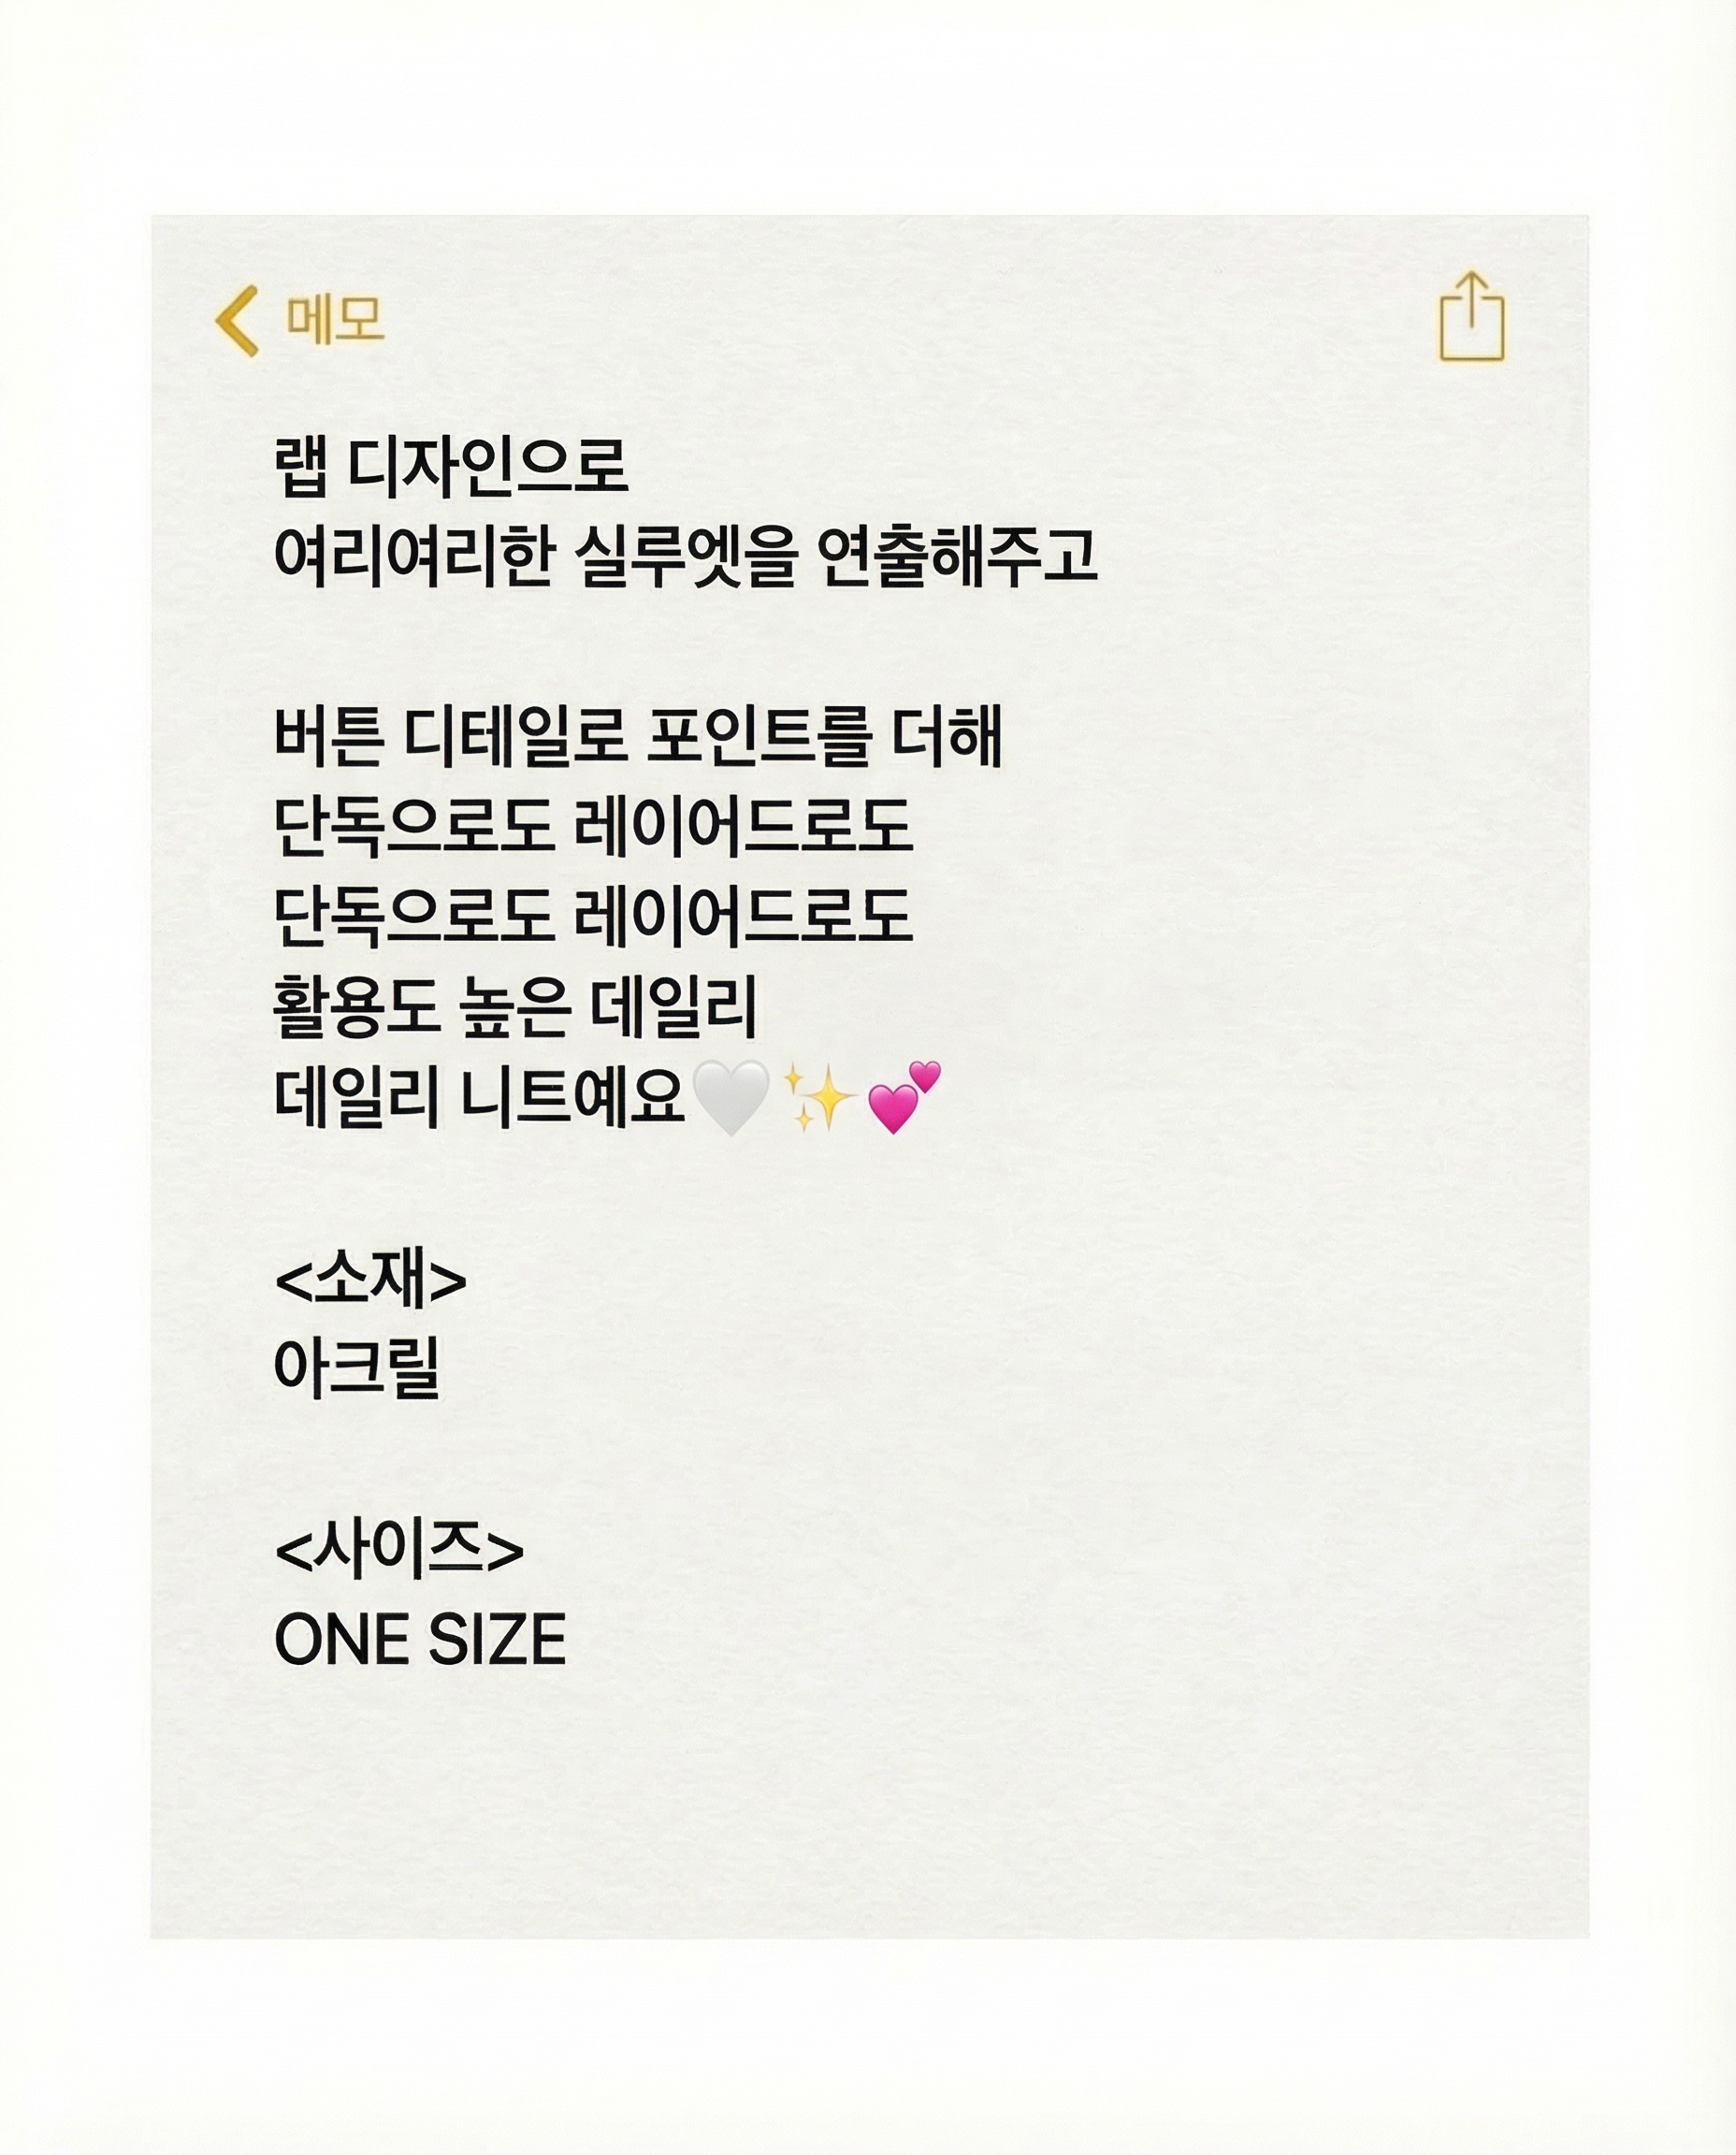 메모
랩 디자인으로
여리여리한 실루엣을 연출해주고
버튼 디테일로 포인트를 더해
단독으로도 레이어드로도
단독으로도 레이어드로도
활용도 높은 데일리
데일리 니트예요🤍✨💕
<소재>
아크릴
<사이즈>
ONE SIZE